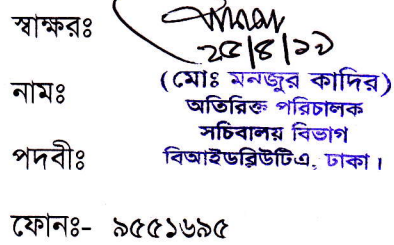 স্বাক্ষরঃ
২৫/৪/১১
নামঃ (মোঃ মনজুর কাদির)
অতিরিক্ত পরিচালক
সচিবালয় বিভাগ
পদবীঃ বিআইডব্লিউটিএ, ঢাকা।
ফোনঃ- ৯৫৫১৬৯৫